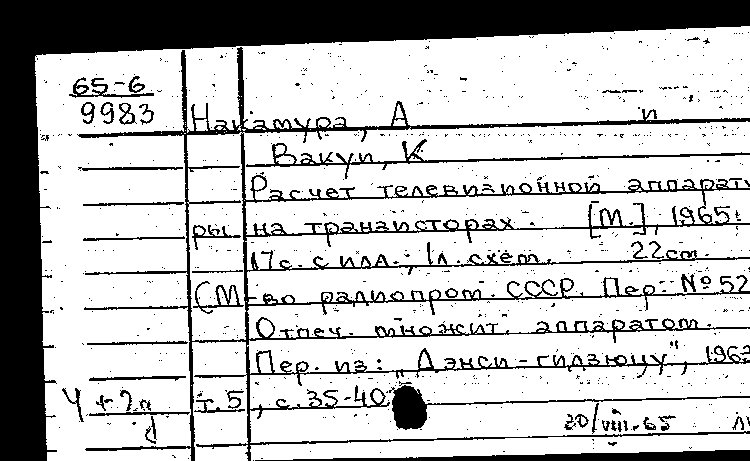 65-6
9983
Накамура, А и
Вакуи, К
Расчет телевизионной аппарату
ры на транзисторах. [М.], 1965.
17с. с илл.; 1л. схем. 22см.
(М-во радиопром. СССР. Пер. № 52
Отпеч. множит. аппаратом.
Пер. из: „Дэнси-гидзюцу", 1963
т.5, с.35-40
20/viii-65